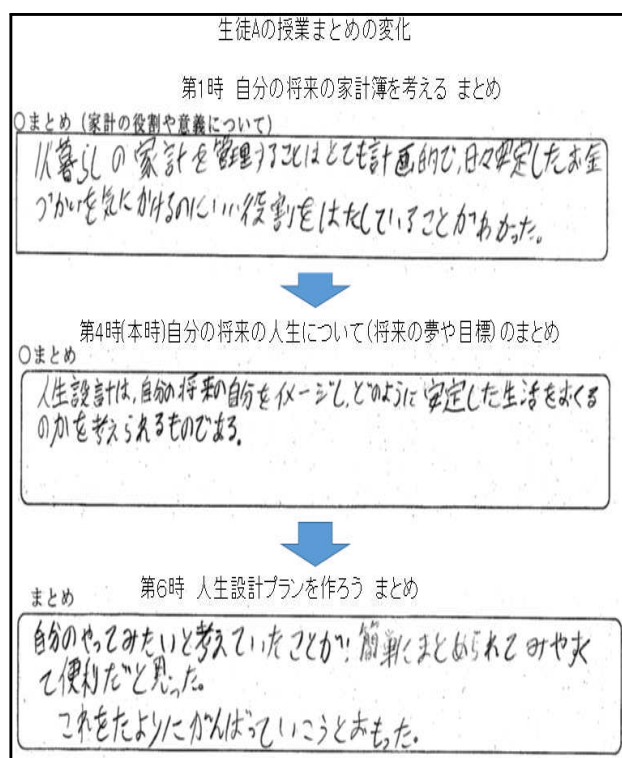 生徒Aの授業まとめの変化
第1時 自分の将来の家計簿を考える まとめ
○まとめ (家計の役割や意義について)
1人暮らしの家計を管理することはとても計画的で、日々安定したお金
づかいを気にかけるのにいい役割をはたしていることがわかった。
第4時(本時)自分の将来の人生について(将来の夢や目標)のまとめ
○まとめ
人生設計は、自分の将来の自分をイメージし、どのように安定した生活をおくる
のかを考えられるものである。
第6時 人生設計プランを作ろう まとめ
まとめ
自分のやってみたいと考えていたことが簡単にまとめられてみやすく
て便利だと思った。
これをたよりにがんばっていこうとおもった。